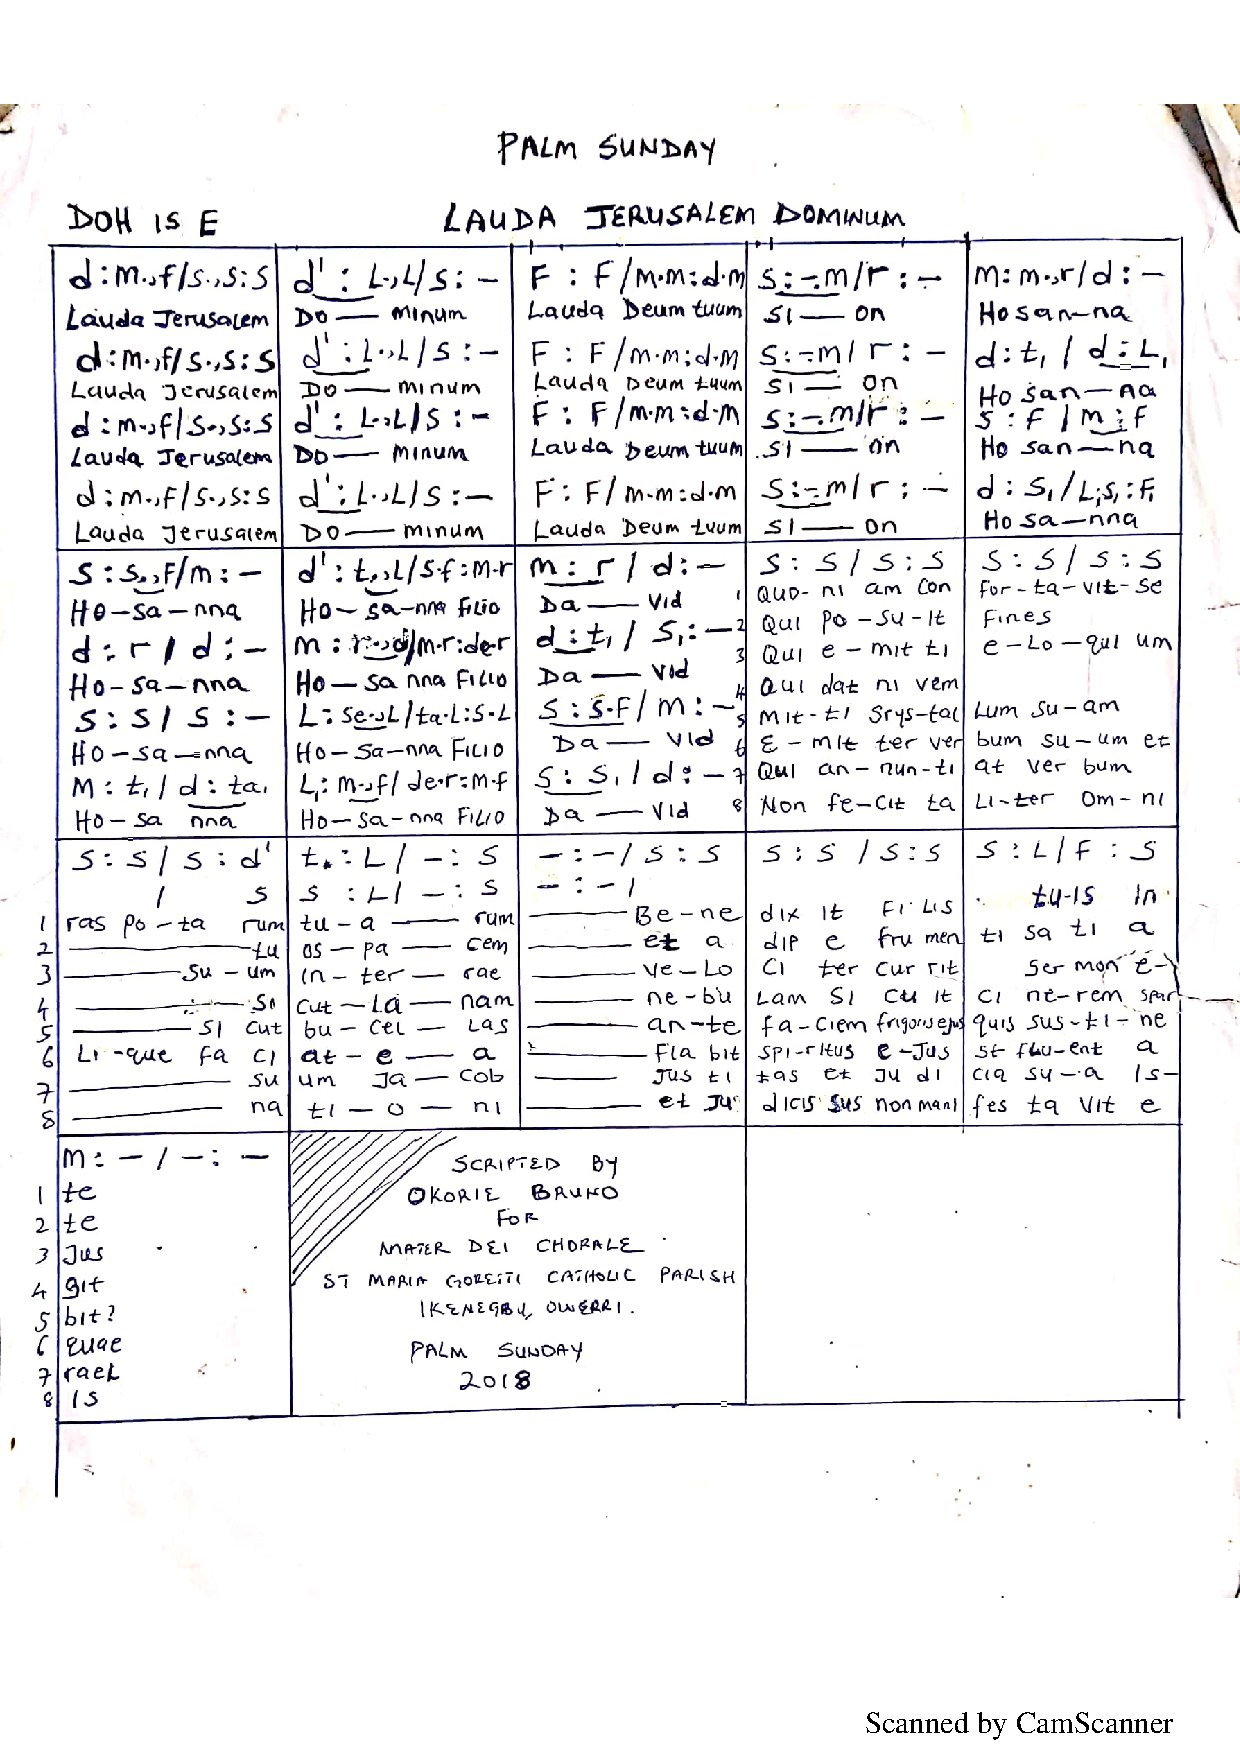 PALM SUNDAY
DOH IS E LAUDA JERUSALEM DOMINUM
d:m.,f/s.,s:s d':L.,L/s:- F:F/m.m:d.m s:-.m/r:- m:m.,r/d:-
Lauda Jerusalem DO— minum Lauda Deum tuum SI— on Hosan-na
d:m.,f/s.,s:s d':L.,L/s:- F:F/m.m:d.m s:-.m/r:- d:t,/d:L,
Lauda Jerusalem DO— minum Lauda Deum tuum SI— on Ho san—na
d:m.,f/s.,s:s d':L.,L/s:- F:F/m.m:d.m s:-.m/r:- s:f/m:f
Lauda Jerusalem DO— minum Lauda Deum tuum SI— on Ho san—na
d:m.,f/s.,s:s d':L.,L/s:- F:F/m.m:d.m s:-.m/r:- d:s,/L,s,:F,
Lauda Jerusalem DO— minum Lauda Deum tuum SI— on Ho sa—nna
s:s.,F/m:- d':t.,L/s.f:m.r m:r/d:- s:s/s:s s:s/s:s
HO-sa-nna HO-sa-nna FILIO Da— vid 1 QUO-ni am con for-ta-vit-se
d:r/d:- d:t,/s,:- 2 QUI po-su-it fines
Ho-sa-nna HO-sa nna FILIO Da— vid 3 QUI e-mit ti e-Lo-qui um
s:s/s:- L:se.,L/ta.L:s.L s:s.F/m:- 4 QUI dat ni vem
HO-sa-nna HO-sa-nna FILIO Da— vid 5 mit-ti Srys-tal Lum su-am
M:t,/d:ta, L,:m.,f/de.r:m.f s:s,/d:- 6 E-mit ter ver bum su-um et
HO-sa nna HO-sa-nna FILIO Da— vid 7 QUI an-nun-ti at ver bum
8 Non fe-cit ta Li-ter om-ni
s:s/s:d' t.:L/-:s -:-/s:s s:s/s:s s:L/F:s
/ s s:L/-:s -:-/
tu-is in
1 ras po-ta rum tu-a— rum — Be-ne dix it Fi Lis
2 —tu os-pa— cem — et a dip e frumen ti sa ti a
3 —su-um in-ter— rae — ve-Lo ci ter cur rit ser mon e-
4 —si cut-La— nam — ne-bu Lam si cu it ci ne-rem spar
5 —si cut bu-cel— Las — an-te fa-ciem frigoris ejus quis sus-ti-ne
6 Li-que fa ci at-e— a — Fla bit spi-ritus e-Jus st flu-ent a
7 —su um Ja— cob — Jus ti tas et Ju di cia su-a Is-
8 —na ti-o-ni — et Ju dicis sus non mani fes ta vit e
m:-/-:-
1 te
2 te
3 Jus
4 git
5 bit?
6 quae
7 raeL
8 is
SCRIPTED BY
OKORIE BRUNO
FOR
MATER DEI CHORALE
ST MARIA GORETTI CATHOLIC PARISH
IKENEGBU, OWERRI.
PALM SUNDAY
2018
Scanned by CamScanner